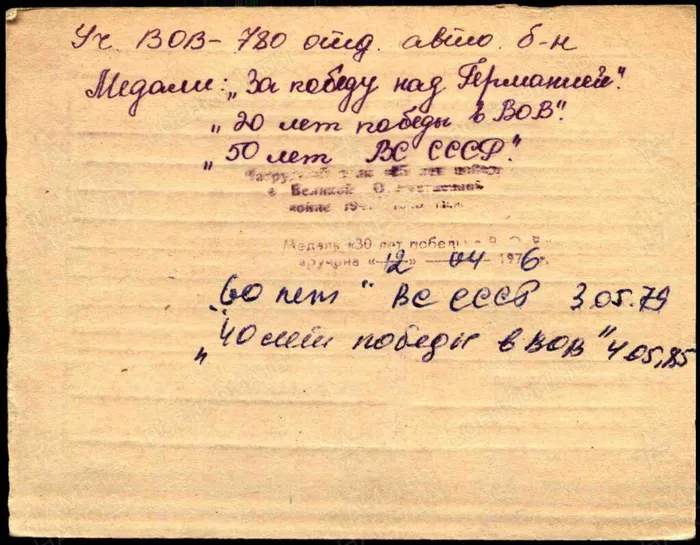 Уч. ВОВ – 780 отд. авто. б-н
Медали: „За победу над Германией".
„20 лет победы в ВОВ".
„50 лет ВС СССР".
Нагрудный знак «25 лет победы
в Великой Отечественной
войне
Медаль «30 лет победы в
вручена «12» 04 1976
„60 лет" ВС СССР 3.05.79
„40 лет победы в ВОВ" 4.05.85